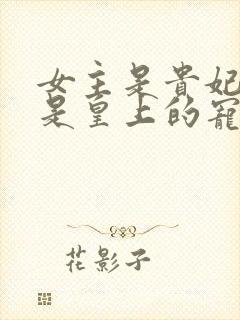 女主是貴妃
是皇上的寵
花影子